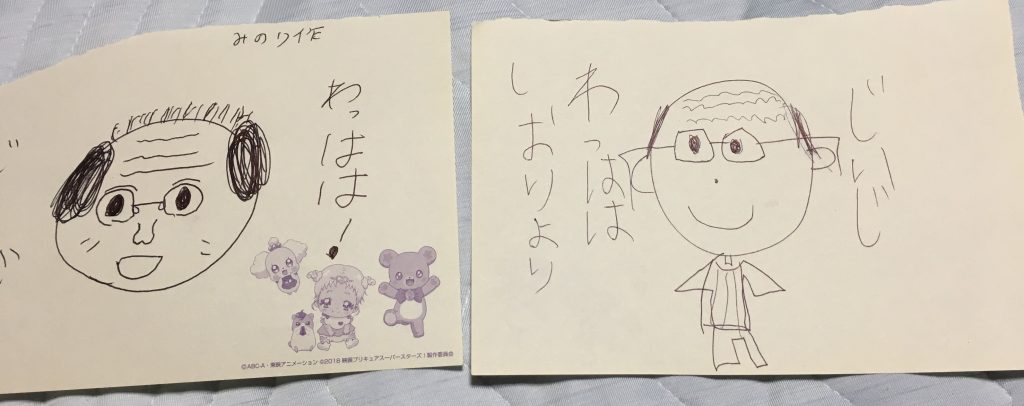 みのり作
わっはは！
©ABC-A・東映アニメーション ©2018 映画プリキュアスーパースターズ！製作委員会
じいじ
わっはは
しおりより